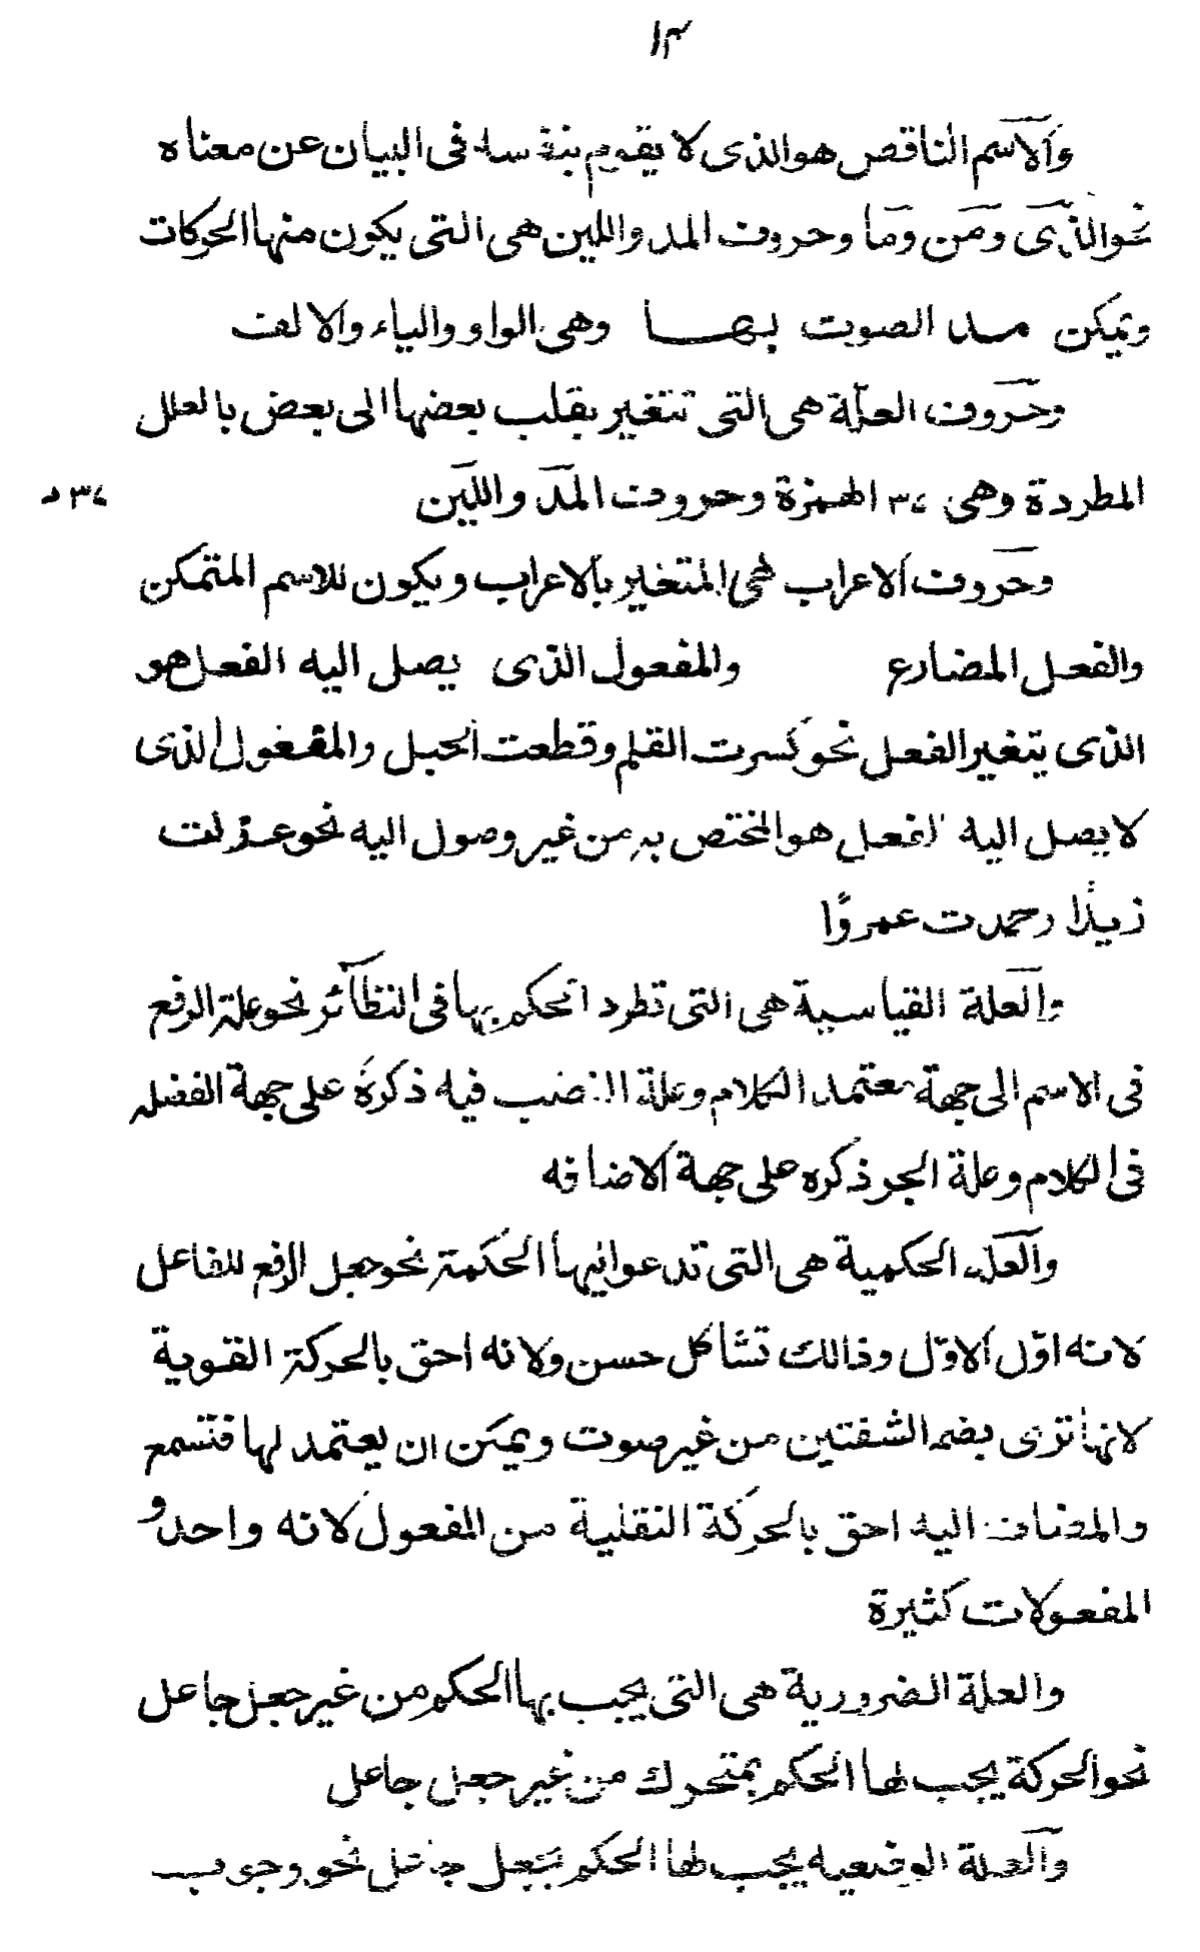 ١٣
والاسم الناقص هو الذى لا يقوم بنفسه فى البيان عن معناه
نحو الذى ومن وما وحروف المد واللين هى التى يكون منها الحركات
ويمكن مد الصوت بها وهى الواو والياء والالف
وحروف العلّة هى التى تتغير بقلب بعضها الى بعض بالعلل
المطردة وهى ٣٤ الهمزة وحروف المدّ واللين
٣٤ د
وحروف الاعراب هى المتغير بالاعراب ويكون للاسم المتمكن
والفعل المضارع والمفعول الذى يصل اليه الفعل هو
الذى يتغير الفعل نحو كسرت القلم وقطعت الحبل والمفعول الذى
لا يصل اليه الفعل هو المختص به من غير وصول اليه نحو عذلت
زيدا وحمدت عمروًا
والعلة القياسية هى التى تطرد الحكم بها فى النظائر نحو علة الرفع
فى الاسم الى جهة معتمد الكلام وعلة النصب فيه ذكره على جهة الفضله
فى الكلام وعلة الجر ذكره على جهة الاضافه
والعلة الحكمية هى التى تدعو اليها الحكمة نحو جعل الرفع للفاعل
لانه اوّل الاوّل وذالك تشاكل حسن ولانه احق بالحركة القوية
لانها ترى بضم الشفتين من غير صوت ويمكن ان يعتمد لها فتسمع
والمضاف اليه احق بالحركة الثقلية من المفعول لانه واحد و
المفعولات كثيرة
والعلة الضرورية هى التى يجب بها الحكم من غير جعل جاعل
نحو الحركة يجب لها الحكم بمتحرك من غير جعل جاعل
والعلة الوضعيه يجب لها الحكم بجعل جاعل نحو وجوب